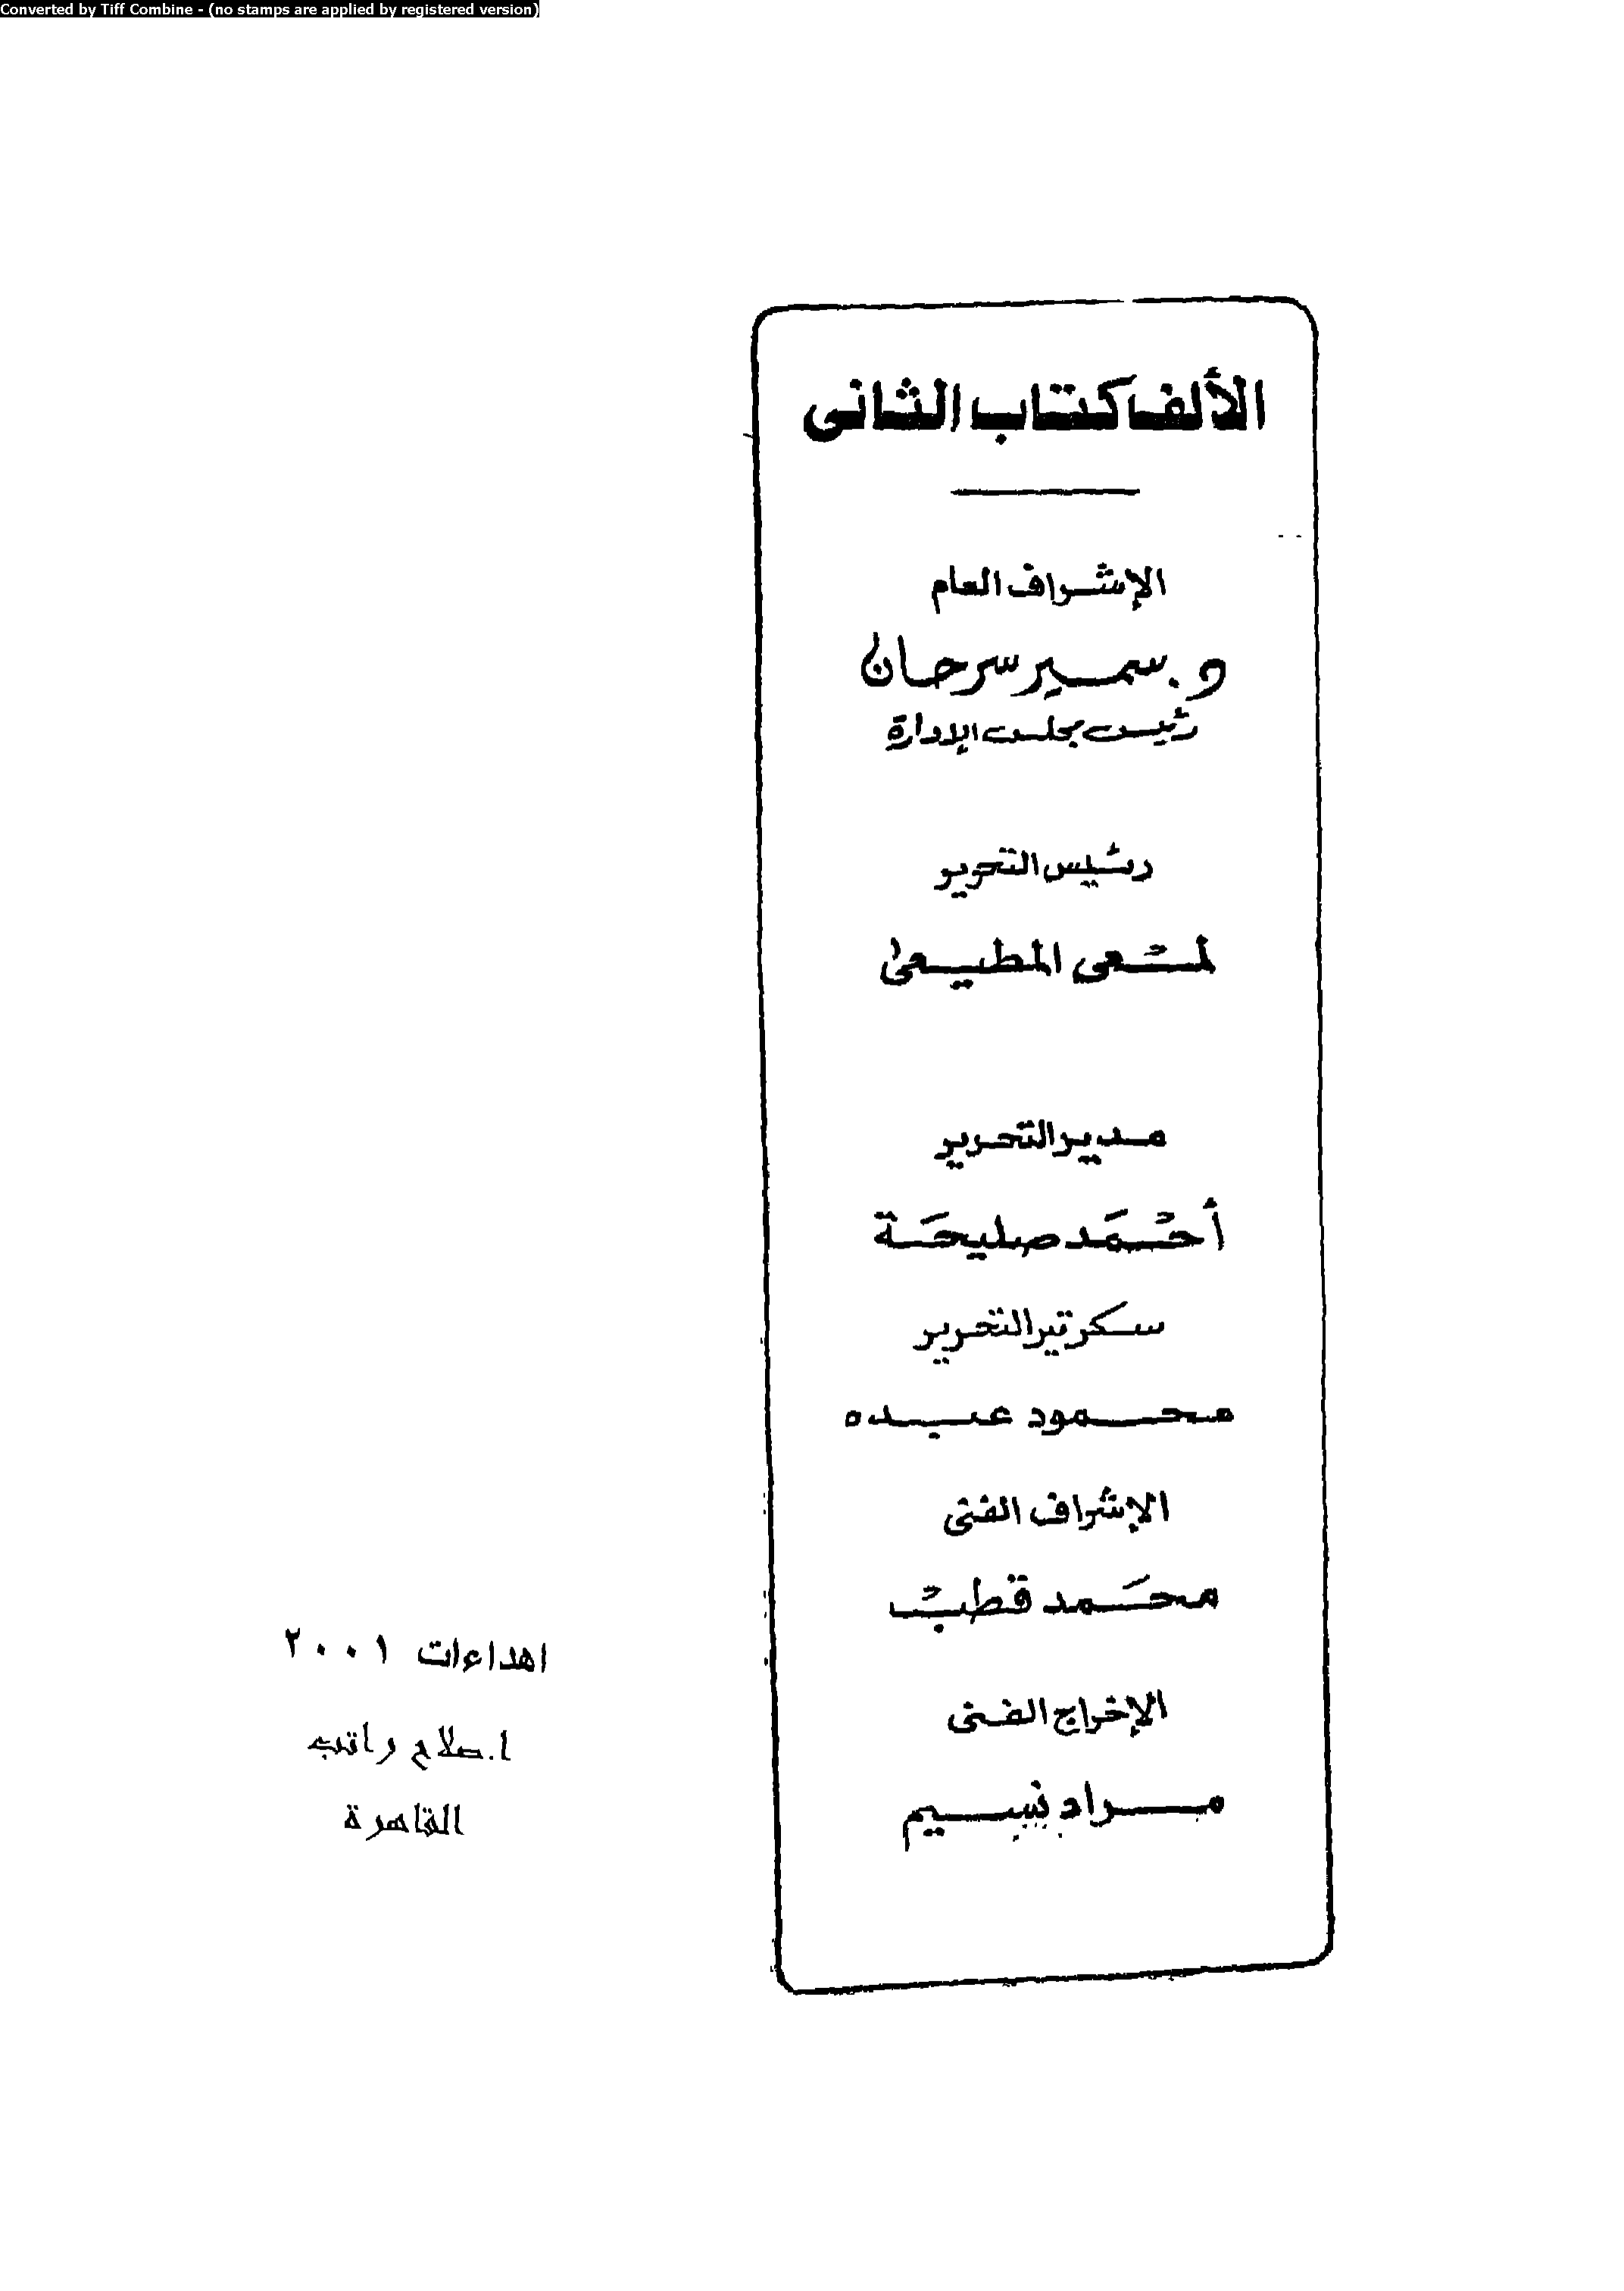 Converted by Tiff Combine - (no stamps are applied by registered version)
الألف كتاب الثانى
الإشراف العام
د. سمير سرحان
رئيس مجلس الإدارة
رئيس التحرير
لمعى المطيعى
مدير التحرير
أحمد صليحة
سكرتير التحرير
محمود عبده
الإشراف الفنى
محمد قطب
الإخراج الفنى
مراد نسيم
اهداءات ٢٠٠١
ا. صلاح راتب
القاهرة